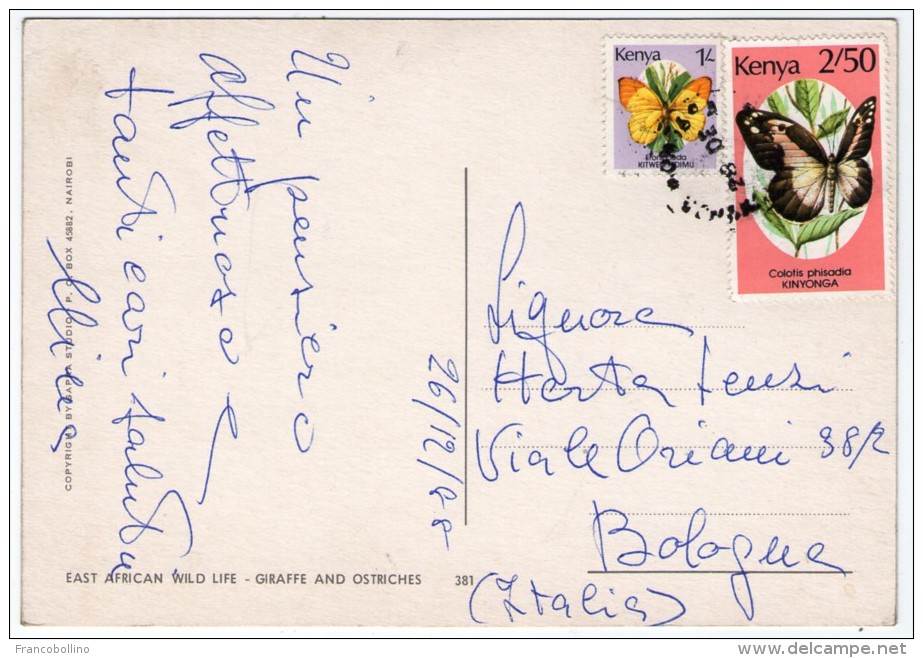 Un pensiero
affettuoso e
tanti cari saluti
26/12/88
COPYRIGHT BY SAPRA STUDIO, P. O. BOX 45882, NAIROBI
EAST AFRICAN WILD LIFE - GIRAFFE AND OSTRICHES 381
Kenya 1/-
KITWEO
Kenya 2/50
Colotis phisadia
KINYONGA
Signora
Marta
Viale Oriani 38/2
Bologna
(Italia)
Francobollino
delcampe.net